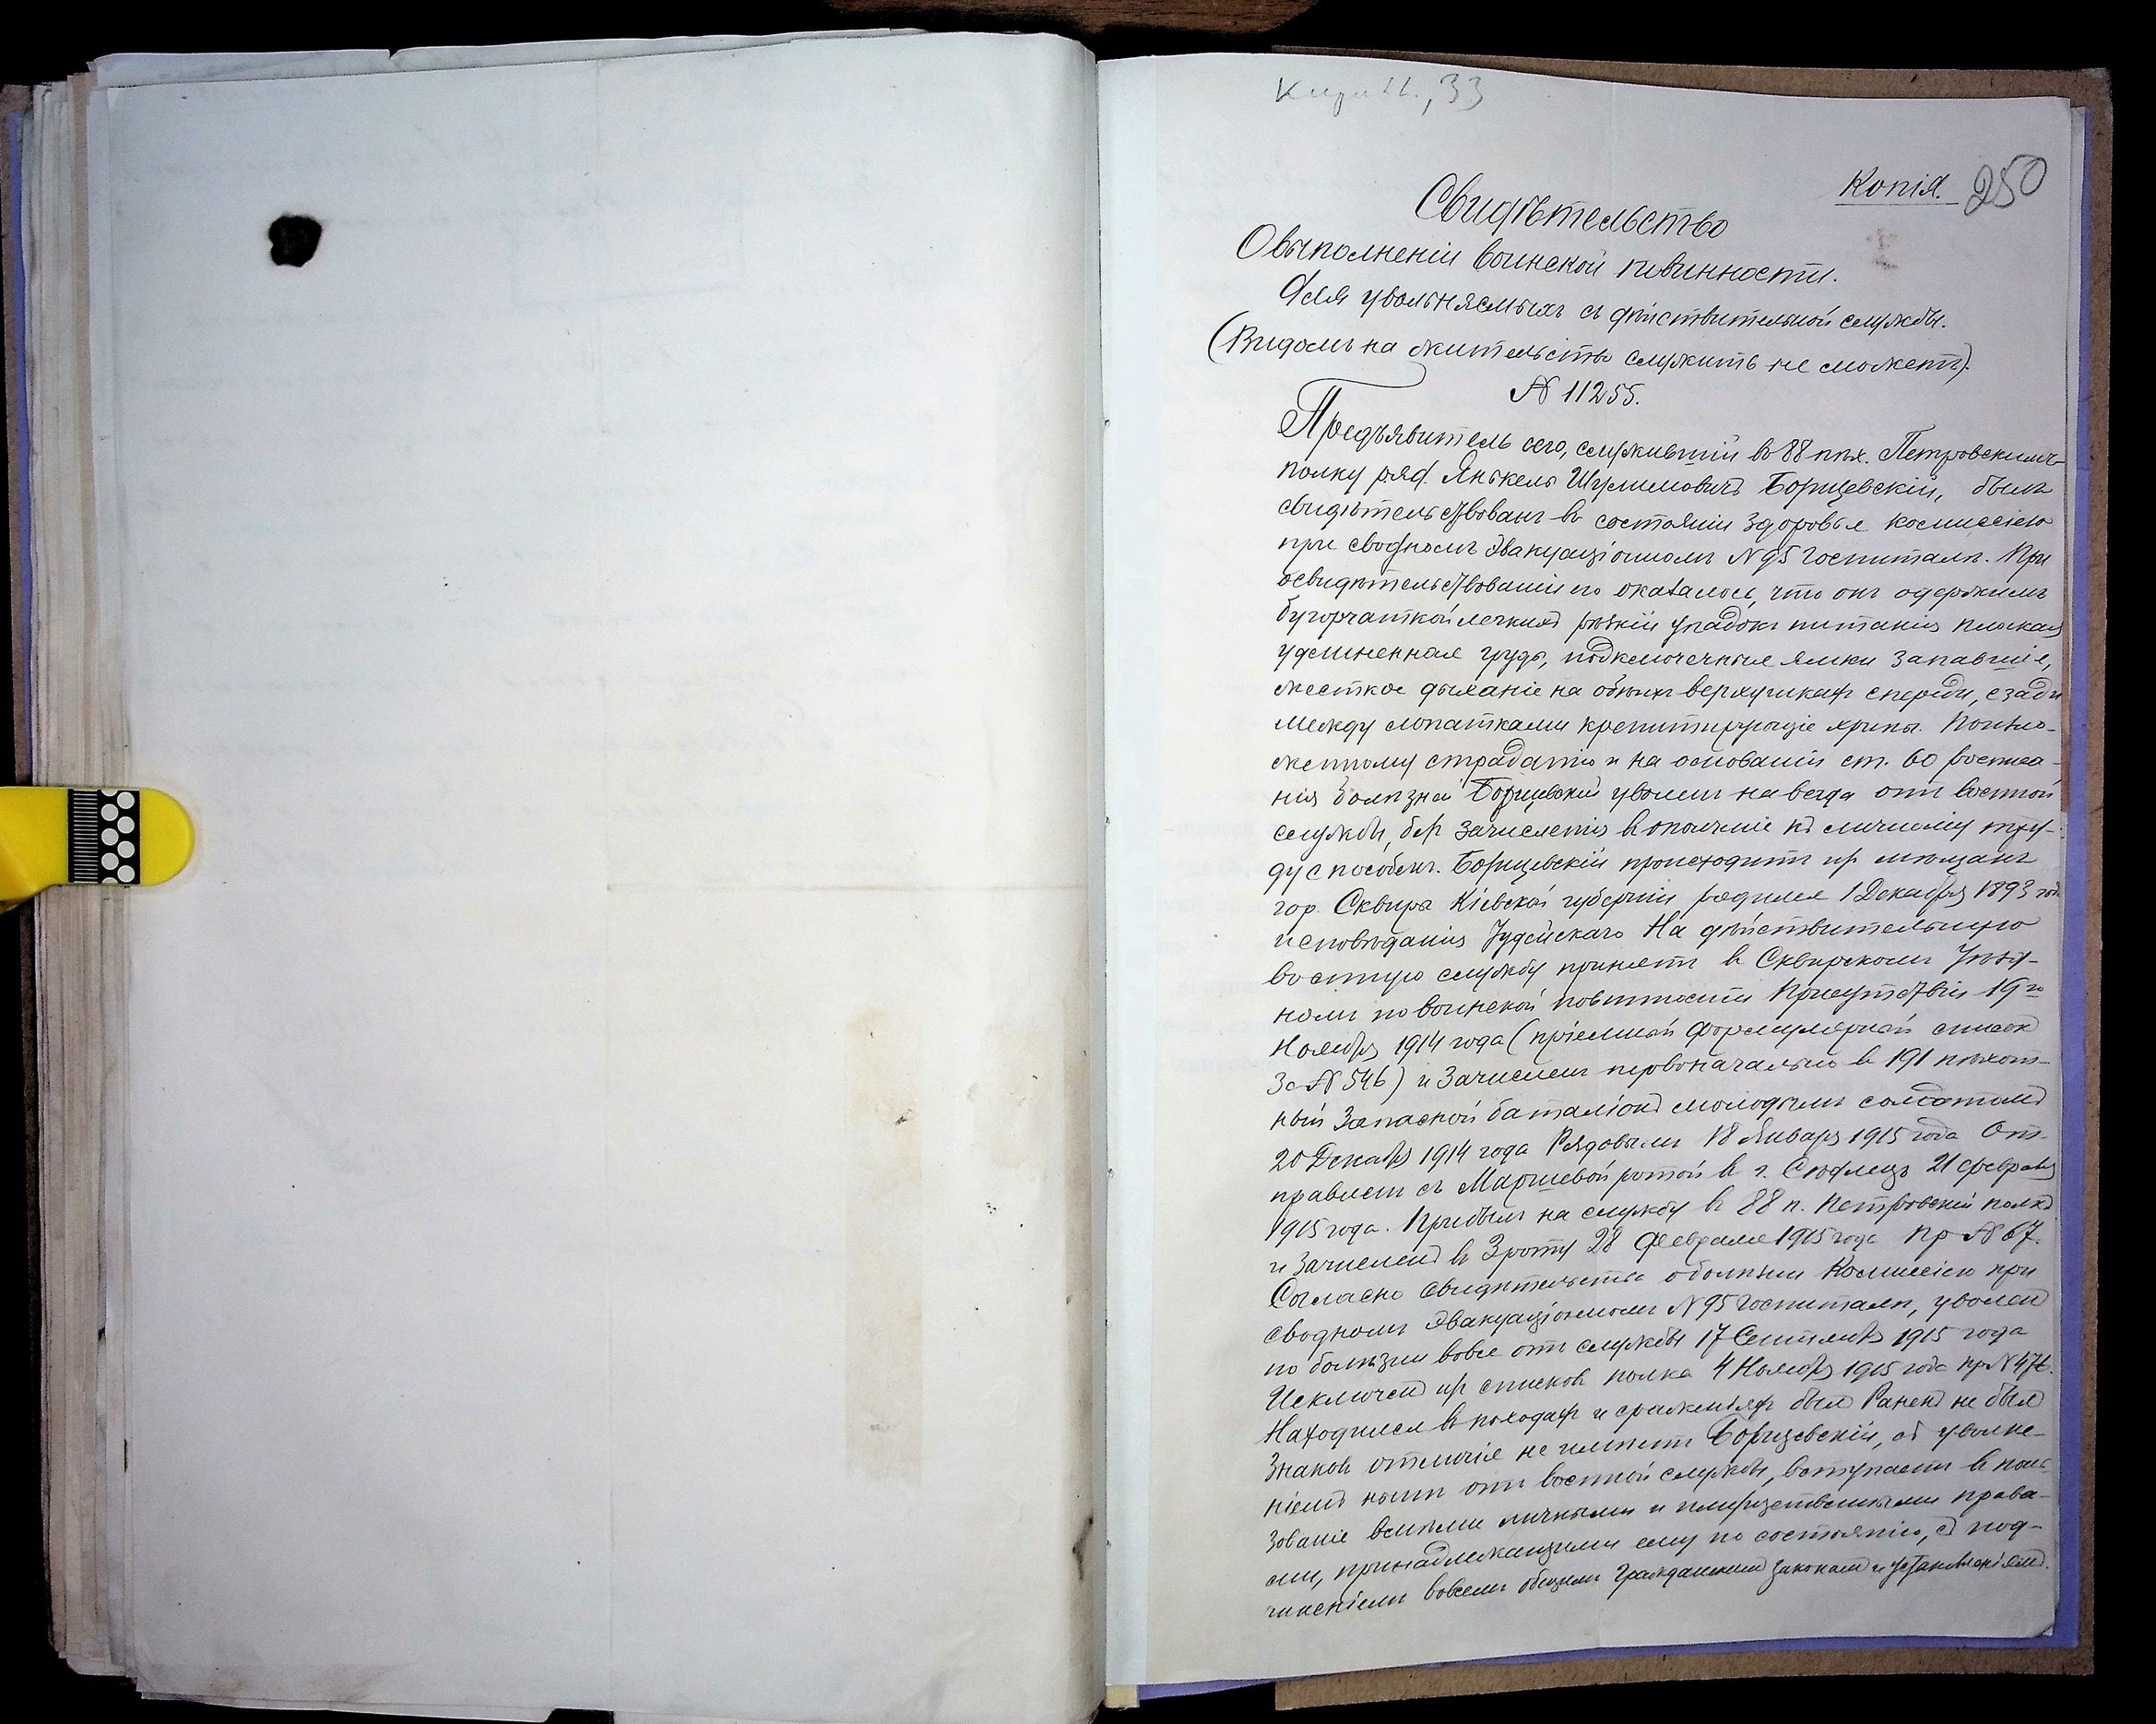 33
Копія. 250
Свидѣтельство
О выполненіи воинской повинности.
Для увольняемыхъ съ дѣйствительной службы.
(Видомъ на жительство служить не можетъ).
№ 11255.
Предъявитель сего, служившій въ 88 пѣх. Петровскимъ
полку ряд. Янкель Шулимовичъ Борщевскій, былъ
свидѣтельствованъ въ состояніи здоровья Коммиссіею
при сводномъ Эвакуаціонномъ № 95 Госпиталѣ. При
освидѣтельствованіи его оказалось, что онъ одержимъ
бугорчаткой легкихъ рѣзкій упадокъ питанія плоская
удлиненная грудь, подключечныя ямки запавшіе,
жесткое дыханіе на обѣихъ верхушкахъ спереди, сзади
между лопатками крепитирующіе хрипы. По изло-
женному страданію и на основаніи ст. 60 росписа-
нія болѣзней Борщевскій уволенъ навсегда отъ военной
службы, безъ зачисленія въ ополченіе къ личному тру-
ду способенъ. Борщевскій происходитъ изъ мѣщанъ
гор. Сквиры Кіевской губерніи родился 1 Декабря 1893 года
исповѣданія Іудейскаго На дѣйствительную
военную службу принятъ въ Сквирскомъ Уѣзд-
номъ по воинской повинности Присутствіи 19го
Ноября 1914 года (пріемный формулярный списокъ
За № 546) и Зачисленъ первоначально въ 191 пѣхот-
ный Запасной баталіонъ молодымъ солдатомъ
20 Декабря 1914 года Рядовымъ 18 Января 1915 года От-
правленъ съ Маршевой ротой въ г. Сѣдлецъ 21 февраля
1915 года. Прибылъ на службу въ 88 п. Петровскій полкъ
и Зачисленъ въ 3 роту 28 Февраля 1915 года пр № 67.
Согласно свидѣтельства о болѣзни Коммиссіею при
сводномъ Эвакуаціонномъ № 95 госпиталѣ, уволенъ
по болѣзни вовсе отъ службы 17 Сентября 1915 года
Исключенъ изъ списковъ полка 4 Ноября 1915 года пр № 476.
Находился въ походахъ и сраженіяхъ былъ Раненъ не былъ
Знаковъ отличія не имѣетъ Борщевскій, съ увольне-
ніемъ отъ военной службы, вступаетъ въ поль-
зованіе всѣми личными и имущественными права-
ми, принадлежащими ему по состоянію, съ под-
чиненіемъ во всемъ общимъ Гражданскимъ законамъ и установленіямъ.